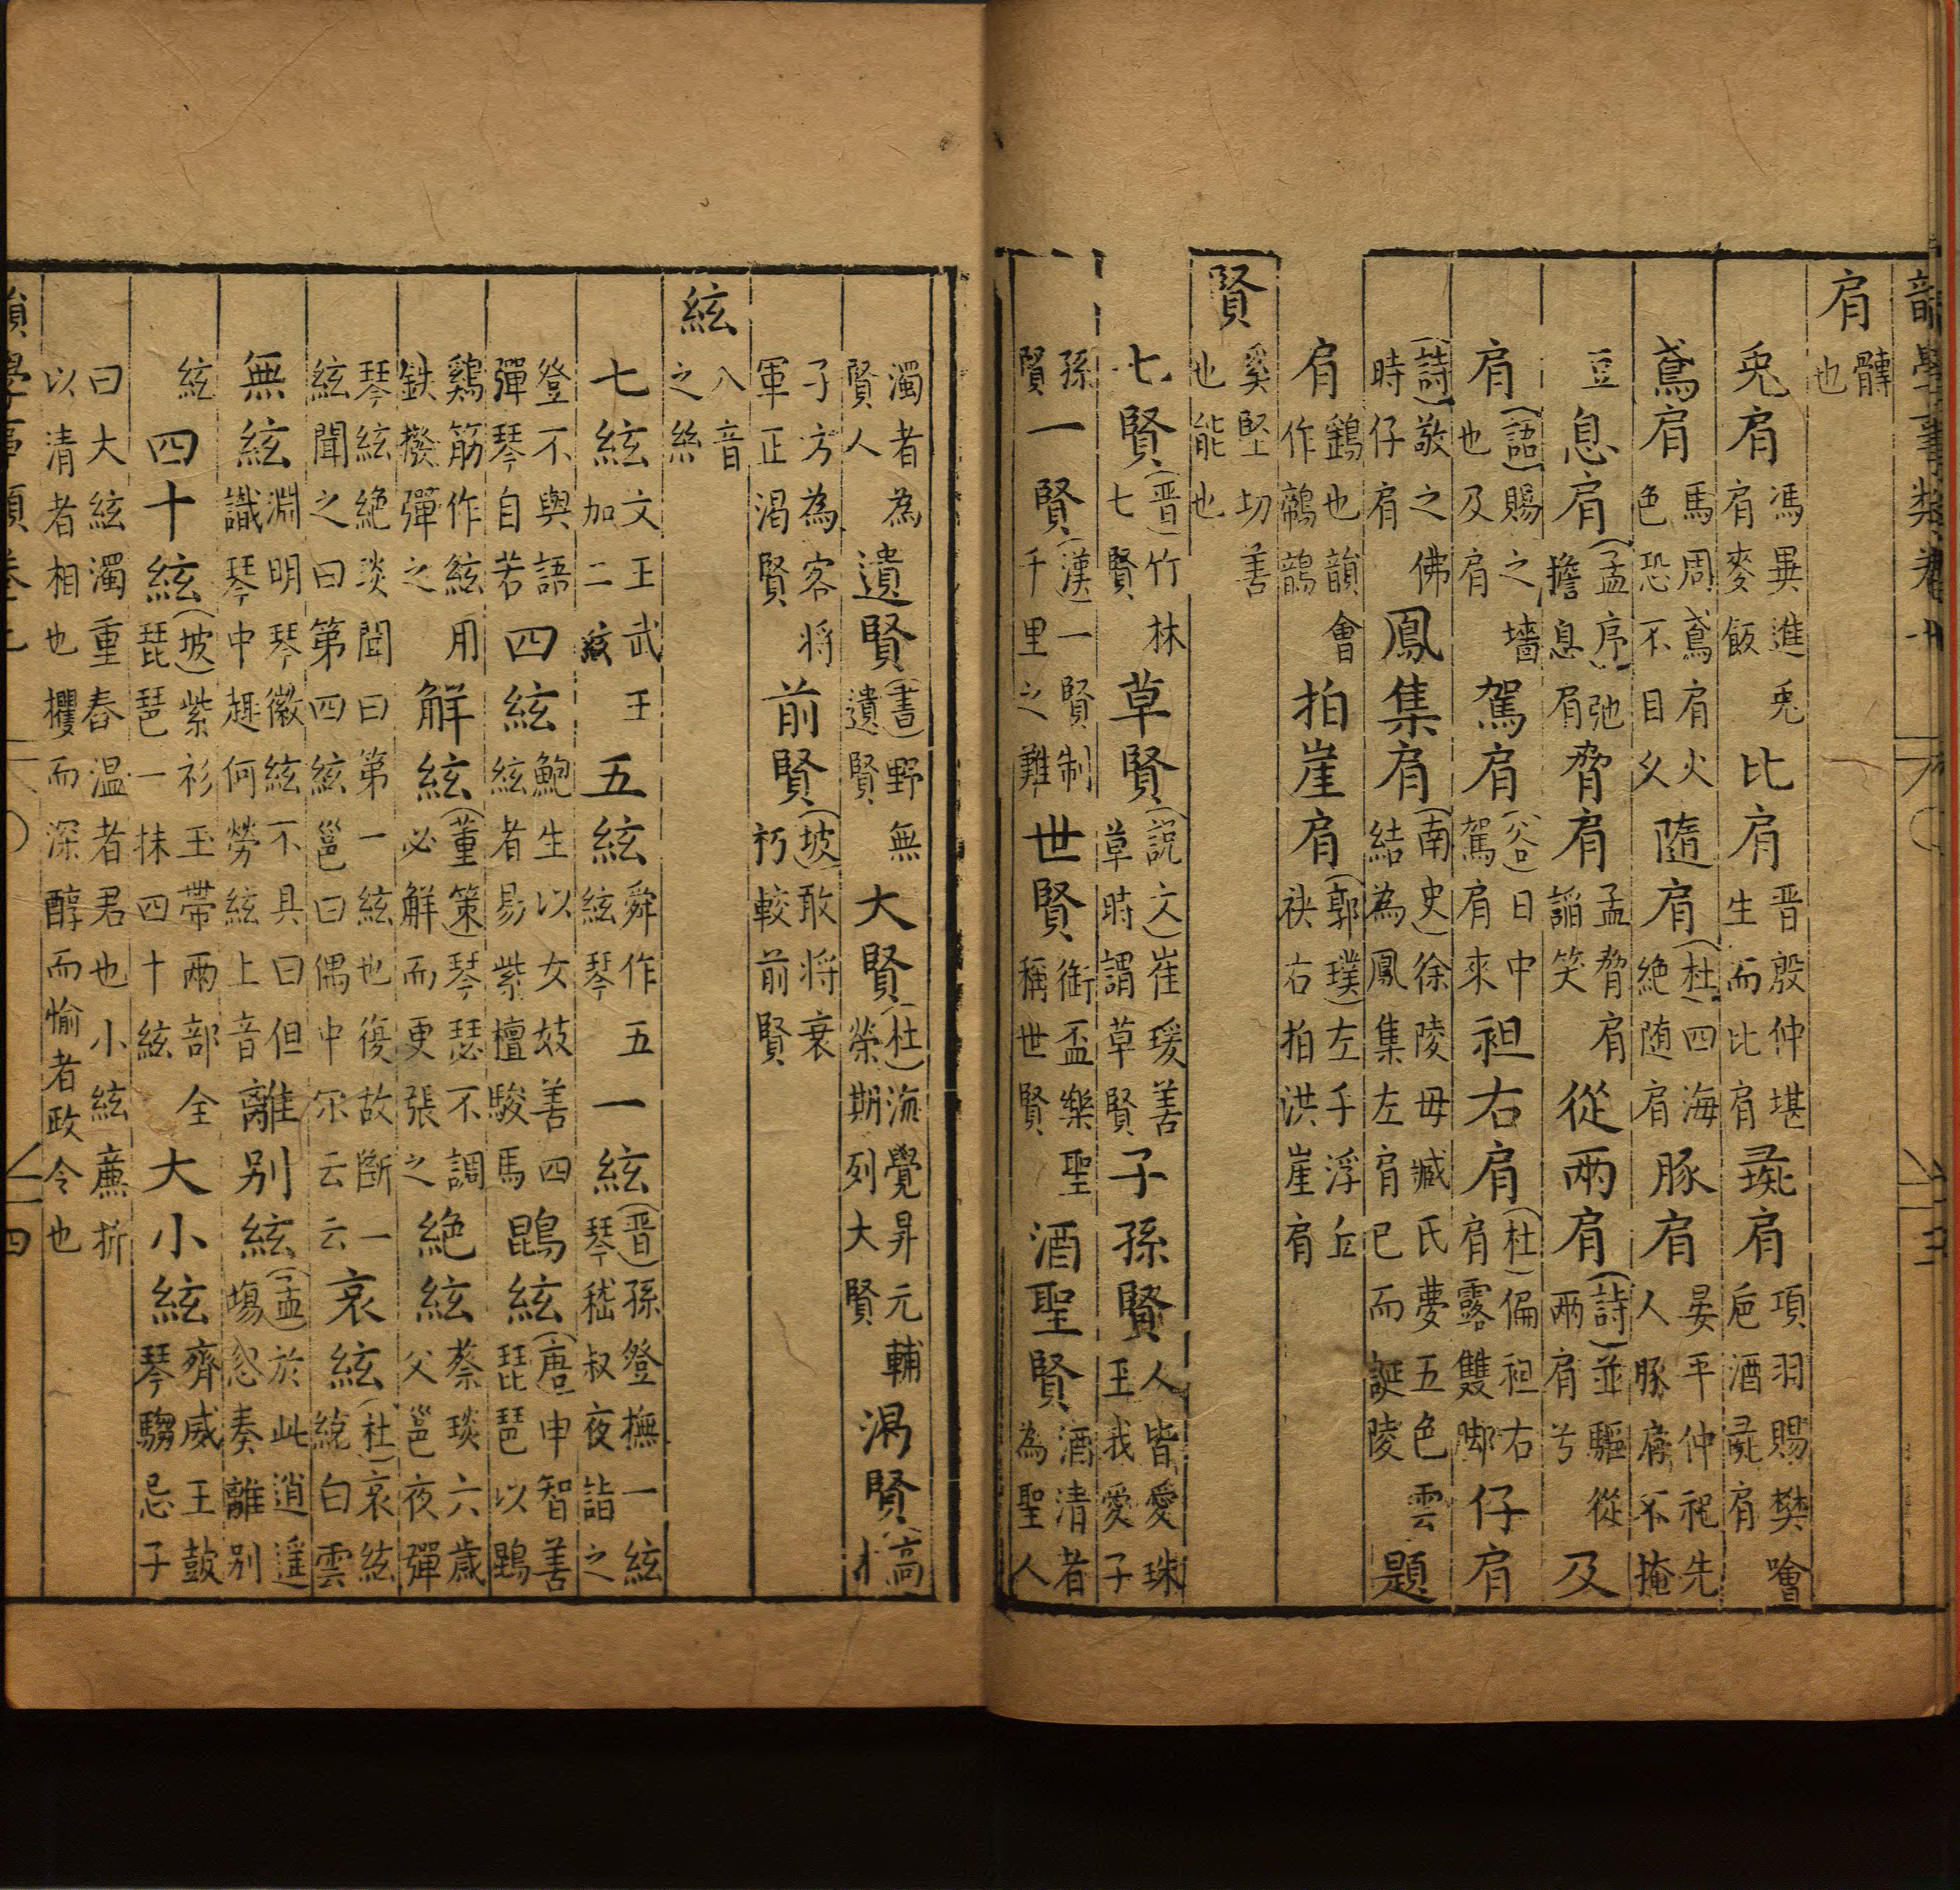 韻學事類卷
肩 髆也
兎肩 馮異進兎肩麥飯 比肩 晋殷仲堪生而比肩 彘肩 項羽賜樊噲巵酒彘肩
鳶肩 馬周鳶肩火色恐不目久 隨肩 (杜)四海絶随肩 豚肩 晏平仲祀先人豚肩不掩
豆 息肩 (孟序)弛擔息肩 脅肩 孟脅肩謟笑 從兩肩 (詩)並驅從兩肩兮 及
肩 (語)賜之墻也及肩 駕肩 (谷)日中駕肩來 袒右肩 (杜)偏袒右肩露雙脚 仔肩
(詩)敬之佛時仔肩 鳳集肩 (南史)徐陵毋臧氏夢五色雲結為鳳集左肩已而誕陵 題
肩 鷂也韻會作鶙鶮 拍崖肩 (郭璞)左手浮丘袂右拍洪崖肩
賢 奚堅切善也能也
七賢 (晋)竹林七賢 草賢 (說文)崔瑗善草時謂草賢 子孫賢 人皆愛珠玉我愛子
孫賢 一賢 (漢)一賢制千里之難 世賢 銜盃樂聖稱世賢 酒聖賢 酒清者為聖人
濁者為賢人 遺賢 (書)野無遺賢 大賢 (杜)流覺昇元輔榮期列大賢 渇賢 (高)
子方為客将軍正渴賢 前賢 (坡)敢将衰朽較前賢
絃 八音之絲
七絃 文王武王加二絃 五絃 舜作五絃琴 一絃 (晋)孫登撫一絃琴嵇叔夜詣之
登不與語彈琴自若 四絃 鮑生以女妓善四絃者易紫檀駿馬 鵾絃 (唐)申智善琵琶以鵾
鷄筋作絃用鉄撥彈之 解絃 (董策)琴瑟不調必解而更張之 絶絃 蔡琰六歲父邕夜彈
琴絃絶琰聞曰第一絃也復故断一絃聞之曰第四絃邕曰偶中尔云云 哀絃 (杜)哀絃繞白雲
無絃 淵明琴徽絃不具曰但識琴中趣何勞絃上音 離别絃 (孟)於此逍遥塲忽奏離别
絃 四十絃 (坡)紫衫玉帶兩部全琵琶一抹四十絃 大小絃 齊威王鼓琴騶忌子
曰大絃濁重春温者君也小絃廉折以清者相也攫而深醇而愉者政令也